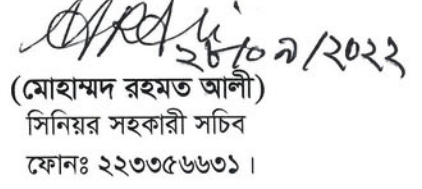 ২৮/০৯/২০২২
(মোহাম্মদ রহমত আলী)
সিনিয়র সহকারী সচিব
ফোনঃ ২২৩৩৫৬৬৩১ ।